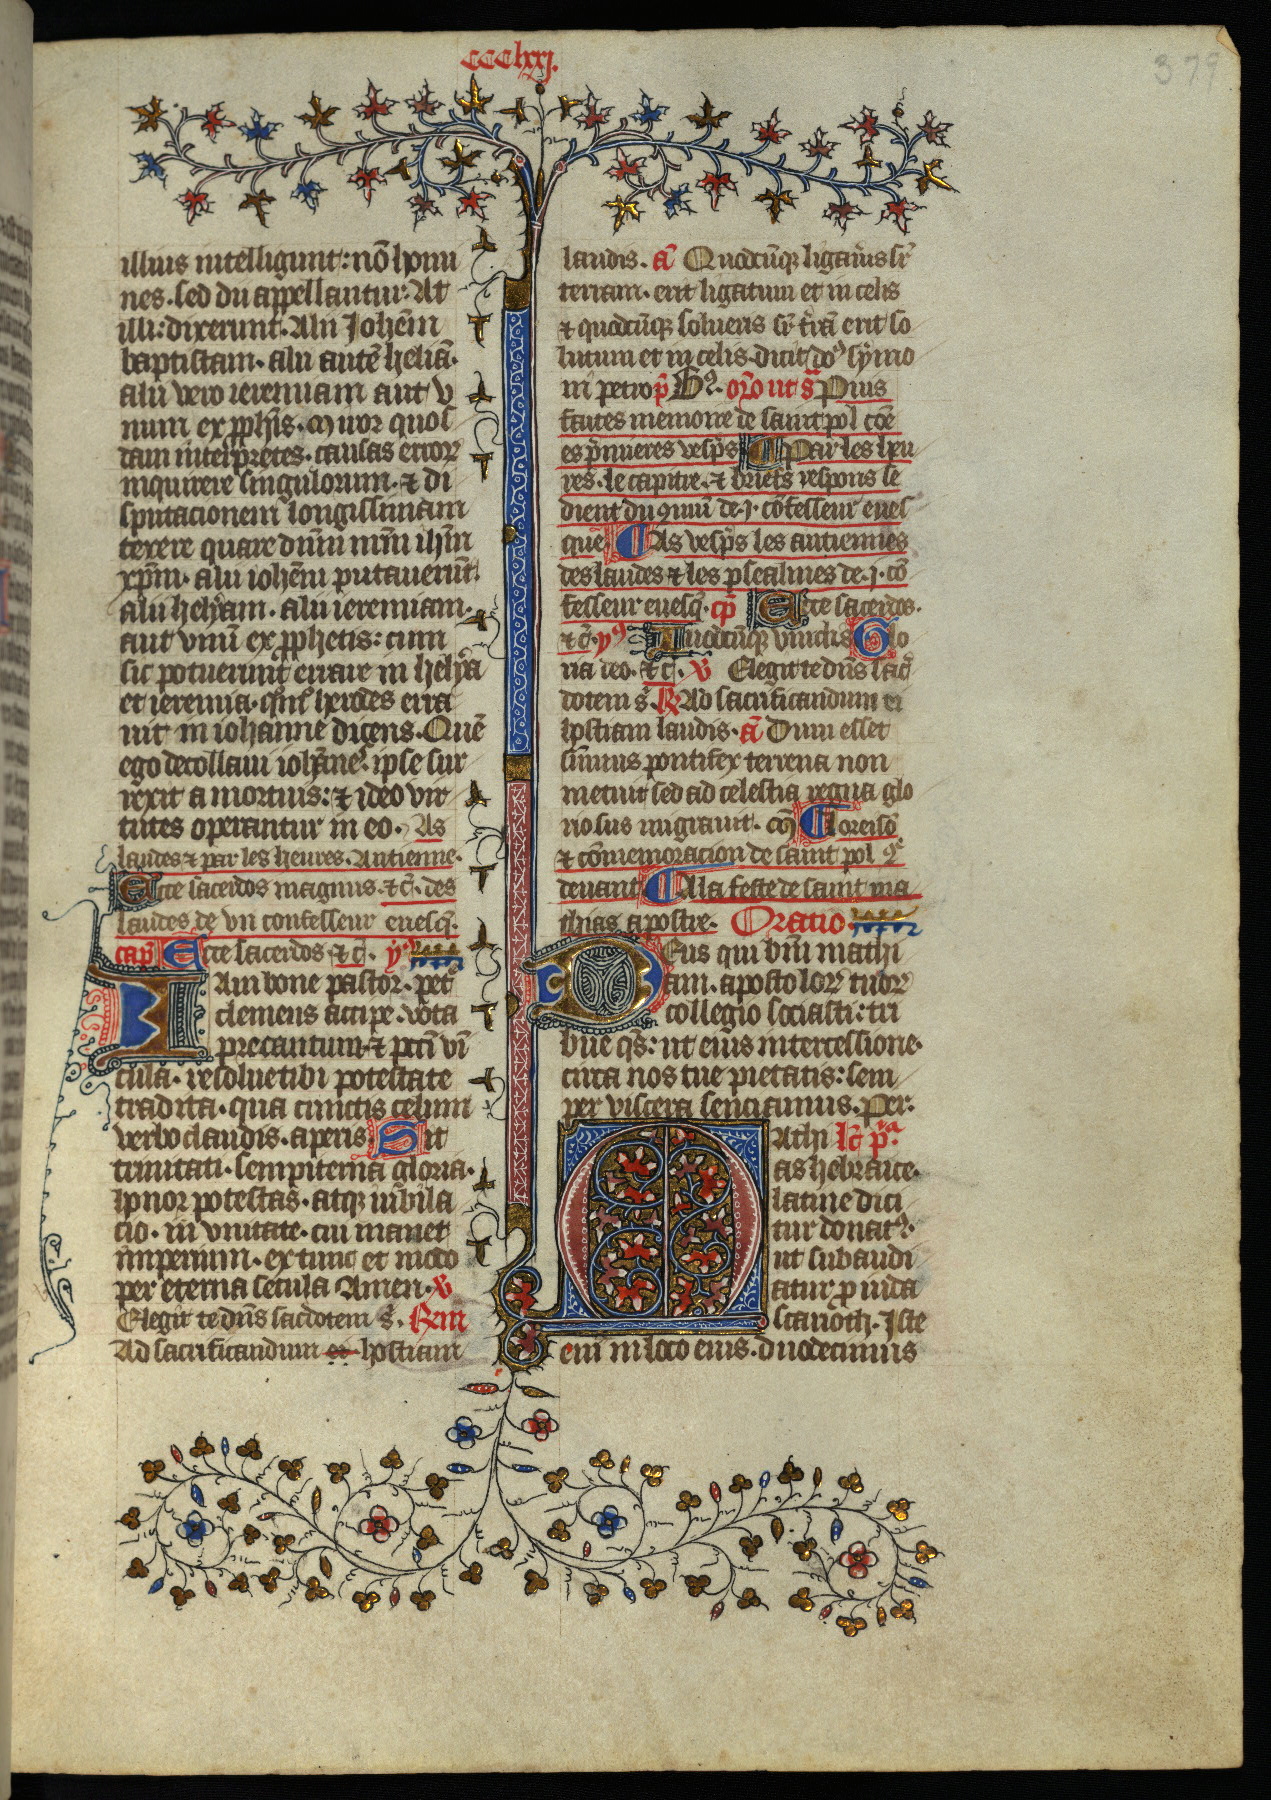 CCClxxj.
379
illius intelligunt: nō homi
nes. sed dii appellantur. At
illi: dixerunt. Alii Iohēm
baptistam. alii autē heliā.
alii vero ieremiam aut v
num ex pphis. Miror quos
dam interpretes. causas erroꝝ
inquirere singulorum. & di
sputacionem longissimam
texere quare dnm nrm ihm
xpm. alii iohēm putauerūt.
alii helyam. alii ieremiam.
aut vnū ex pphetis: cum
sic potuerunt errare in helya
et ieremia. herodes erra
uit in iohanne dicens. Quē
ego decollaui iohānē. ipse sur
rexit a mortuis: & ideo vir
tutes operantur in eo. As
laudes & par les heures. Antienne.
Ecce sacerdos magnus. &c̄. des
laudes de vn confesseur euesq̄.
cap̄ Ecce sacerdos &c̄. yᵒ
Iam bone pastor. petr̄
clemens accipe. vota
precantum. & pccī vī
cula. resolue tibi potestate
tradita. qua cunctis celum
verbo claudis. aperis. Sit
trinitati. sempiterna gloria.
honor potestas. atq̄ iubila
cio. in vnitate. cui manet
imperium. ex tunc et modo
per eterna secula Amen. v̄
Elegit te dn̄s sacdotem s̄.
Ad sacrificandum ei hostiam
laudis. ā Quodcūq̄ ligaūis sr̄
terram. erit ligatum et in celis
& quodcūq̄ solueris sr̄ trā erit so
lutum et in celis. dicit dōs symo
ni petro p̄ oꝛo ut s̄ Puis
faites memoire de saint pol cōe
es p̄mieres vesp̄s Par les heu
res. le capitre. & briefs respons se
dient du ꝯmū de .j. cōfesseur eues
que. As vesp̄s les antiennes
des laudes & les psealmes de .j. cō
fesseur euesq̄. cp̄ Ecce sacerdos.
&c̄. yᵒ Quodcūq̄ vinclis Glo
ria deo. &c̄. v̄ Elegit te dn̄s sac̄
dotem s̄. R̄ Ad sacrificandum ei
hostiam laudis. ā Dum esset
sūmus pontifex terrena non
metuit sed ad celestia regna glo
riosus migrauit. Loreisō
& cōmemoracion de saint pol
deuant A la feste de saint ma
thias apostre. Oratio
Deus qui btm mathi
am. apostoloꝝ tuoꝝ
collegio sociasti: tri
bue qs: ut eius intercessione.
circa nos tue pietatis: sem
per viscera senciamus. Per.
Mathi lc̄ p̄ᵃ
as hebraice.
latine dici
tur donatꝰ.
ut subaudi
atur. p iuda
scarioth. Iste
eni in loco eius. duodecimus